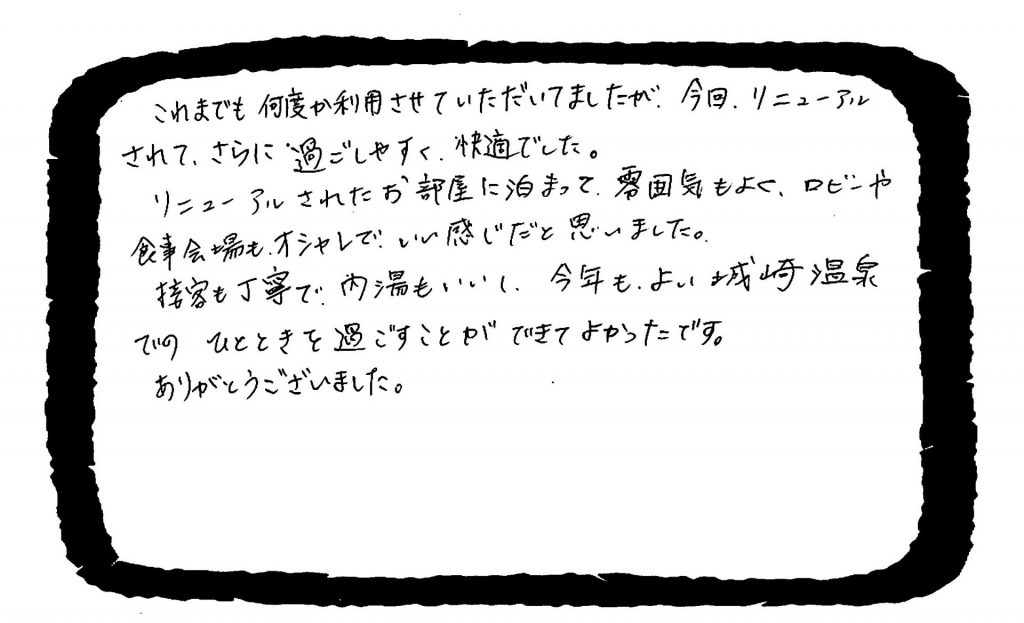 これまでも何度か利用させていただいてましたが、今回、リニューアル
されて、さらに過ごしやすく、快適でした。
リニューアルされたお部屋に泊まって、雰囲気もよく、ロビーや
食事会場も、オシャレで、いい感じだと思いました。
接客も丁寧で、内湯もいいし、今年も、よい城崎温泉
での ひとときを過ごすことができてよかったです。
ありがとうございました。